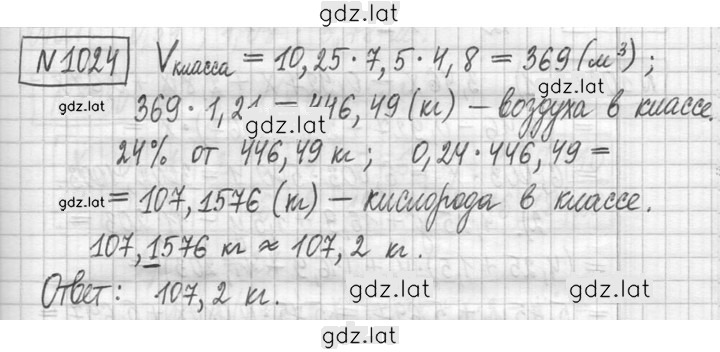 gdz.lat
№1024 Vкласса = 10,25·7,5·4,8 = 369 (м³);
gdz.lat
gdz.lat
369·1,21 = 446,49 (кг) – воздуха в классе.
gdz.lat
24% от 446,49 кг; 0,24·446,49 =
gdz.lat
= 107,1576 (кг) – кислорода в классе.
107,1576 кг ≈ 107,2 кг.
Ответ: 107,2 кг.
gdz.lat
gdz.lat
gdz.lat